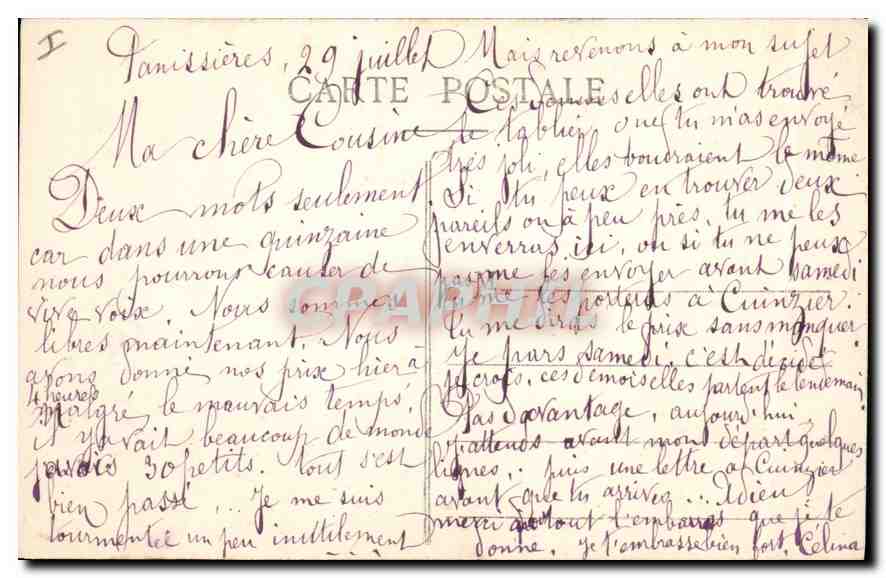 I
Panissières, 29 juillet
CARTE POSTALE
Ma chère Cousine
Deux mots seulement
car dans une quinzaine
nous pourrons causer de
vive voix. Nous sommes
libres maintenant. Nous
avons donné nos prix hier à
4 heures
malgré le mauvais temps,
il y avait beaucoup de monde
j'avais 30 petits. tout s'est
bien passé... Je me suis
tourmentée un peu inutilement
Mais revenons à mon sujet
Ces demoiselles ont trouvé
le tablier que tu m'as envoyé
très joli, elles voudraient le même
Si tu peux en trouver deux
pareils ou à peu près, tu me les
enverras ici, ou si tu ne peux
pas me les envoyer avant samedi
tu me les porteras à Cuinzier.
tu me diras le prix sans manquer
je pars samedi, c'est décidé
je crois, ces demoiselles partent le lendemain
Pas davantage, aujourd'hui
j'attends avant mon départ quelques
lignes, puis une lettre à Cuinzier
avant que tu arrives... Adieu
merci pour tout l'embarras que je te
donne, je t'embrasse bien fort, Célina
CPAPHIL